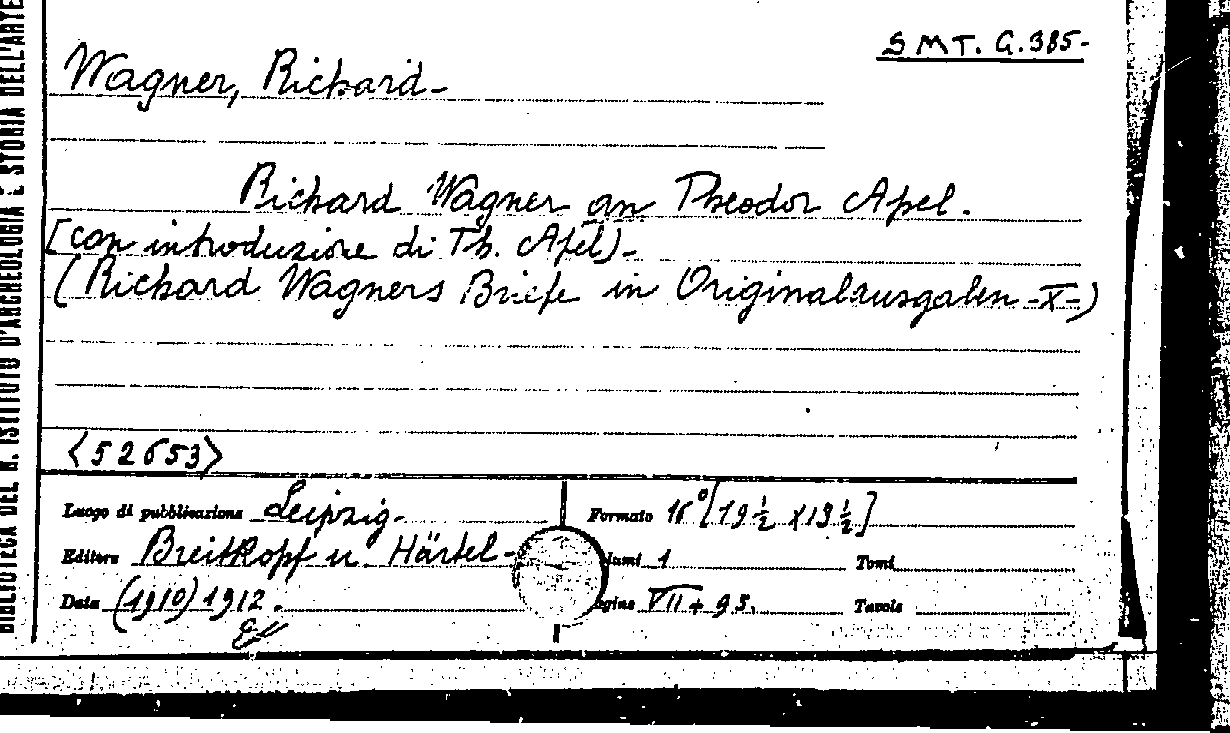 S M T. G. 385-
Wagner, Richard-
Richard Wagner an Theodor Apel.
[con introduzione di Th. Apel)-
(Richard Wagners Briefe in Originalausgaben -X-)
<52653>
Luogo di pubblicazione Leipzig-
Formato 16° [19 ½ x 13 ½]
Editore Breitkopf u. Härtel-
lumi 1 Tomi
Data (1910) 1912.
agine VII + 95. Tavole
BIBLIOTECA DEL R. ISTITUTO D'ARCHEOLOGIA E STORIA DELL'ARTE